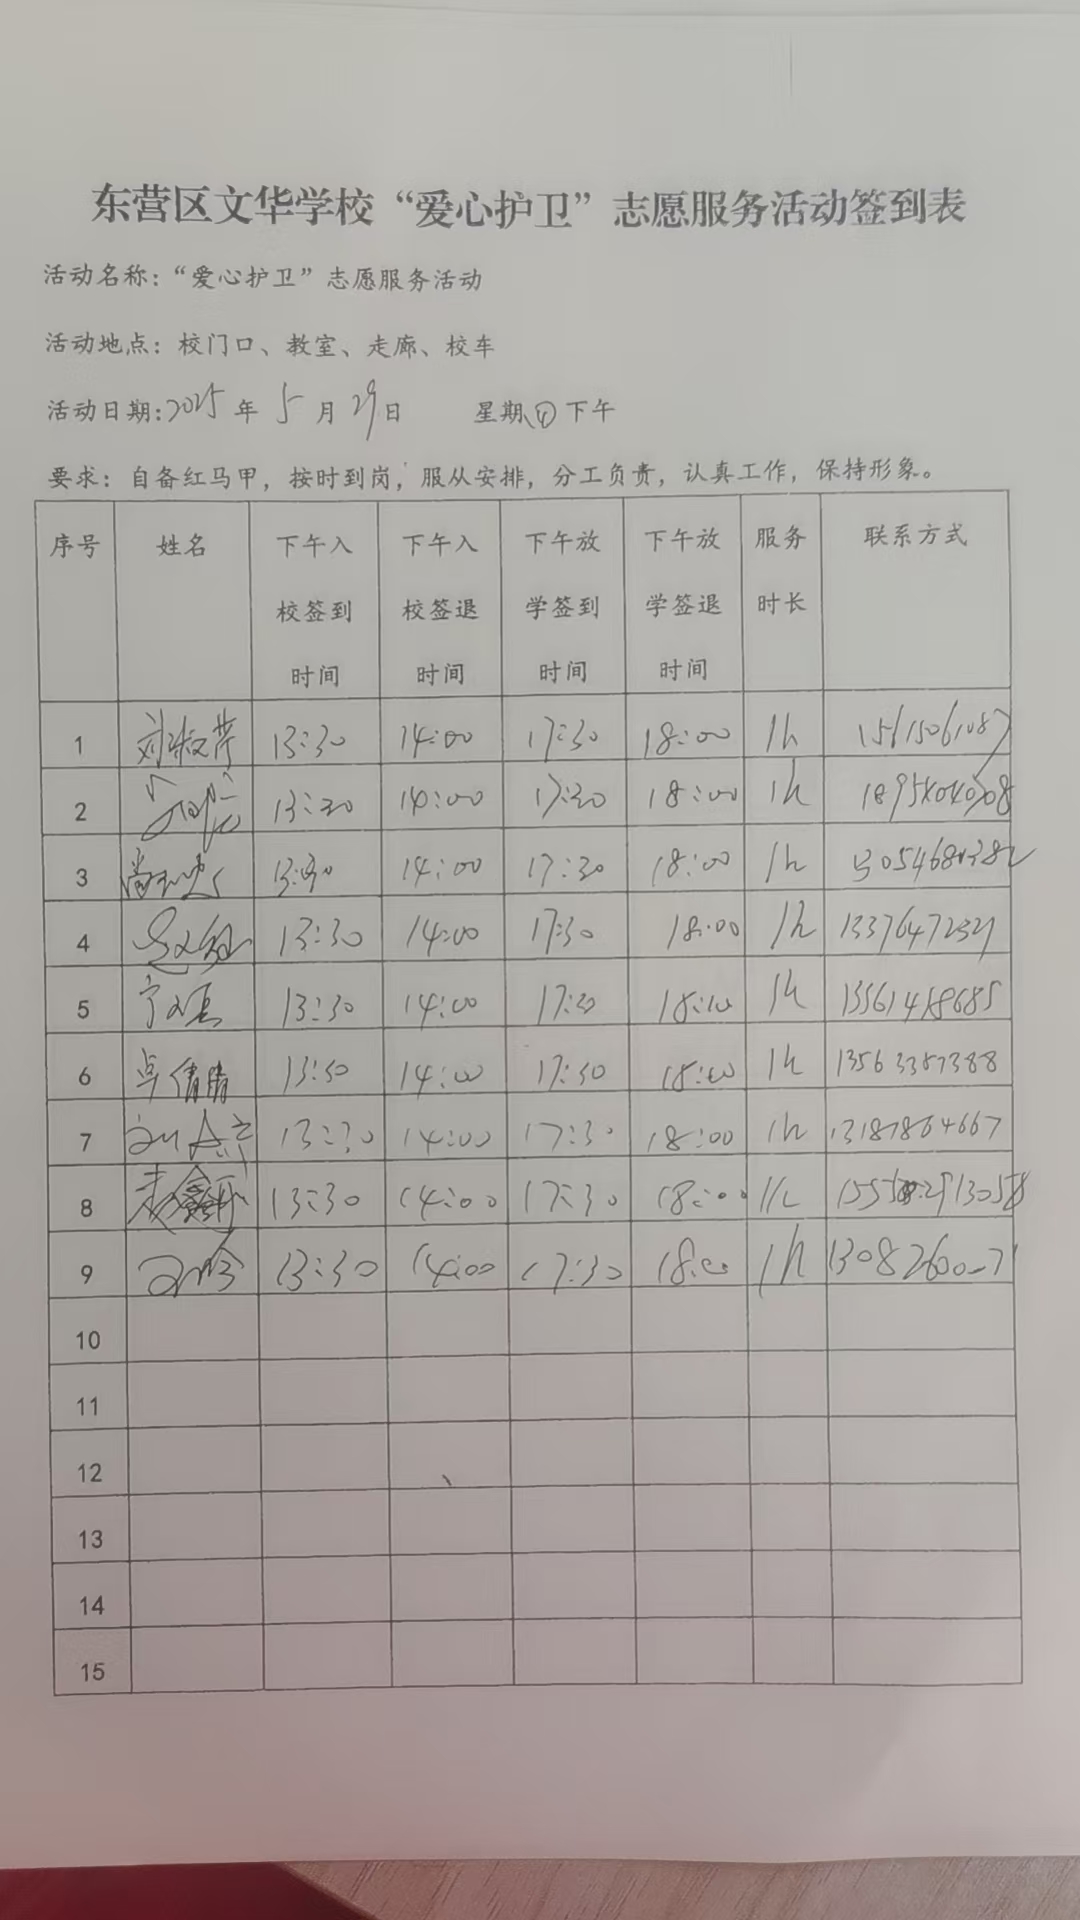 东营区文华学校“爱心护卫”志愿服务活动签到表
活动名称：“爱心护卫”志愿服务活动
活动地点：校门口、教室、走廊、校车
活动日期:2025年 5 月 29日 星期④下午
要求：自备红马甲，按时到岗，服从安排，分工负责，认真工作，保持形象。
序号 姓名 下午入校签到时间 下午入校签退时间 下午放学签到时间 下午放学签退时间 服务时长 联系方式
1 13:30 14:00 17:30 18:00 1h 15615061087
2 13:30 14:00 17:30 18:00 1h
3 13:30 14:00 17:30 18:00 1h
4 13:30 14:00 17:30 18:00 1h
5 13:30 14:00 17:30 1h
6 卓倩倩 13:30 14:00 17:30 18:00 1h 13563387388
7 13:30 14:00 17:30 18:00 1h 13187864667
8 13:30 14:00 17:30 18:00 1h
9 13:30 14:00 17:30 18:00 1h
10
11
12
13
14
15